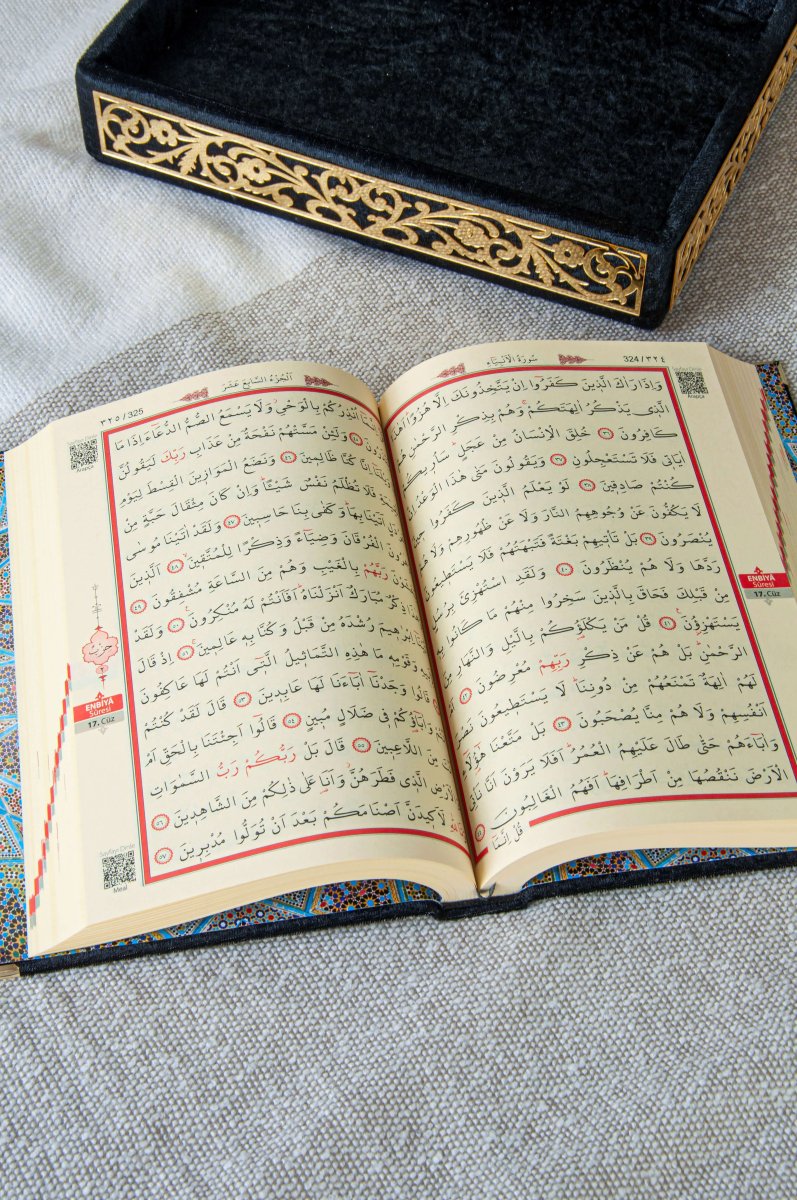 324 / ٣٢٤
سُورَةُ الْاَنْبِيَاءِ
وَاِذَا رَاٰكَ الَّذ۪ينَ كَفَرُٓوا اِنْ يَتَّخِذُونَكَ اِلَّا هُزُوًاۜ اَهٰذَا
الَّذ۪ي يَذْكُرُ اٰلِهَتَكُمْۚ وَهُمْ بِذِكْرِ الرَّحْمٰنِ هُمْ
كَافِرُونَ ﴿٣٦﴾ خُلِقَ الْاِنْسَانُ مِنْ عَجَلٍۜ سَاُر۪يكُمْ
اٰيَات۪ي فَلَا تَسْتَعْجِلُونِ ﴿٣٧﴾ وَيَقُولُونَ مَتٰى هٰذَا الْوَعْدُ اِنْ
كُنْتُمْ صَادِق۪ينَ ﴿٣٨﴾ لَوْ يَعْلَمُ الَّذ۪ينَ كَفَرُوا ح۪ينَ
لَا يَكُفُّونَ عَنْ وُجُوهِهِمُ النَّارَ وَلَا عَنْ ظُهُورِهِمْ وَلَا هُمْ
يُنْصَرُونَ ﴿٣٩﴾ بَلْ تَأْت۪يهِمْ بَغْتَةً فَتَبْهَتُهُمْ فَلَا يَسْتَط۪يعُونَ
رَدَّهَا وَلَا هُمْ يُنْظَرُونَ ﴿٤٠﴾ وَلَقَدِ اسْتُهْزِئَ بِرُسُلٍ
مِنْ قَبْلِكَ فَحَاقَ بِالَّذ۪ينَ سَخِرُوا مِنْهُمْ مَا كَانُوا بِه۪
يَسْتَهْزِؤُ۫نَ۟ ﴿٤١﴾ قُلْ مَنْ يَكْلَؤُ۬كُمْ بِالَّيْلِ وَالنَّهَارِ مِنَ
الرَّحْمٰنِۜ بَلْ هُمْ عَنْ ذِكْرِ رَبِّهِمْ مُعْرِضُونَ ﴿٤٢﴾
لَهُمْ اٰلِهَةٌ تَمْنَعُهُمْ مِنْ دُونِنَاۜ لَا يَسْتَط۪يعُونَ نَصْرَ
اَنْفُسِهِمْ وَلَا هُمْ مِنَّا يُصْحَبُونَ ﴿٤٣﴾ بَلْ مَتَّعْنَا هٰٓؤُ۬لَٓاءِ
وَاٰبَٓاءَهُمْ حَتّٰى طَالَ عَلَيْهِمُ الْعُمُرُۜ اَفَلَا يَرَوْنَ اَنَّا نَأْتِي
الْاَرْضَ نَنْقُصُهَا مِنْ اَطْرَافِهَاۜ اَفَهُمُ الْغَالِبُونَ ﴿٤٤﴾
قُلْ اِنَّمَٓا
Arapça
ENBİYÂ
Sûresi
17. Cüz
٣٢٥ / 325
اَلْجُزْءُ السَّابِعَ عَشَرَ
اُنْذِرُكُمْ بِالْوَحْيِۘ وَلَا يَسْمَعُ الصُّمُّ الدُّعَٓاءَ اِذَا مَا
﴿٤٥﴾ وَلَئِنْ مَسَّتْهُمْ نَفْحَةٌ مِنْ عَذَابِ رَبِّكَ لَيَقُولُنَّ
اِنَّا كُنَّا ظَالِم۪ينَ ﴿٤٦﴾ وَنَضَعُ الْمَوَاز۪ينَ الْقِسْطَ لِيَوْمِ
فَلَا تُظْلَمُ نَفْسٌ شَيْـًٔاۜ وَاِنْ كَانَ مِثْقَالَ حَبَّةٍ مِنْ
اَتَيْنَا بِهَاۜ وَكَفٰى بِنَا حَاسِب۪ينَ ﴿٤٧﴾ وَلَقَدْ اٰتَيْنَا مُوسٰى
الْفُرْقَانَ وَضِيَٓاءً وَذِكْرًا لِلْمُتَّق۪ينَۙ ﴿٤٨﴾ اَلَّذ۪ينَ
رَبَّهُمْ بِالْغَيْبِ وَهُمْ مِنَ السَّاعَةِ مُشْفِقُونَ ﴿٤٩﴾
ذِكْرٌ مُبَارَكٌ اَنْزَلْنَاهُۜ اَفَاَنْتُمْ لَهُ مُنْكِرُونَ۟ ﴿٥٠﴾ وَلَقَدْ
اِبْرٰه۪يمَ رُشْدَهُ مِنْ قَبْلُ وَكُنَّا بِه۪ عَالِم۪ينَۚ ﴿٥١﴾ اِذْ قَالَ
وَقَوْمِه۪ مَا هٰذِهِ التَّمَاث۪يلُ الَّت۪ٓي اَنْتُمْ لَهَا عَاكِفُونَ
قَالُوا وَجَدْنَٓا اٰبَٓاءَنَا لَهَا عَابِد۪ينَ ﴿٥٣﴾ قَالَ لَقَدْ كُنْتُمْ
وَاٰبَٓاؤُ۬كُمْ ف۪ي ضَلَالٍ مُب۪ينٍ ﴿٥٤﴾ قَالُٓوا اَجِئْتَنَا بِالْحَقِّ اَمْ
مِنَ اللَّاعِب۪ينَ ﴿٥٥﴾ قَالَ بَلْ رَبُّكُمْ رَبُّ السَّمٰوَاتِ
الْاَرْضِ الَّذ۪ي فَطَرَهُنَّۘ وَاَنَا۬ عَلٰى ذٰلِكُمْ مِنَ الشَّاهِد۪ينَ ﴿٥٦﴾
لَاَك۪يدَنَّ اَصْنَامَكُمْ بَعْدَ اَنْ تُوَلُّوا مُدْبِر۪ينَ ﴿٥٧﴾
Arapça
حزب
ENBİYÂ
Sûresi
17. Cüz
Sayfayı Dinle
Meal